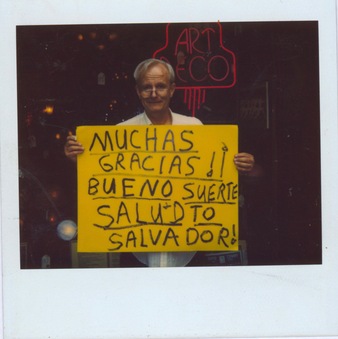 ART
ECO
MUCHAS
GRACIAS ¡¡
BUENO SUERTE
SALUD TO
SALVADOR!